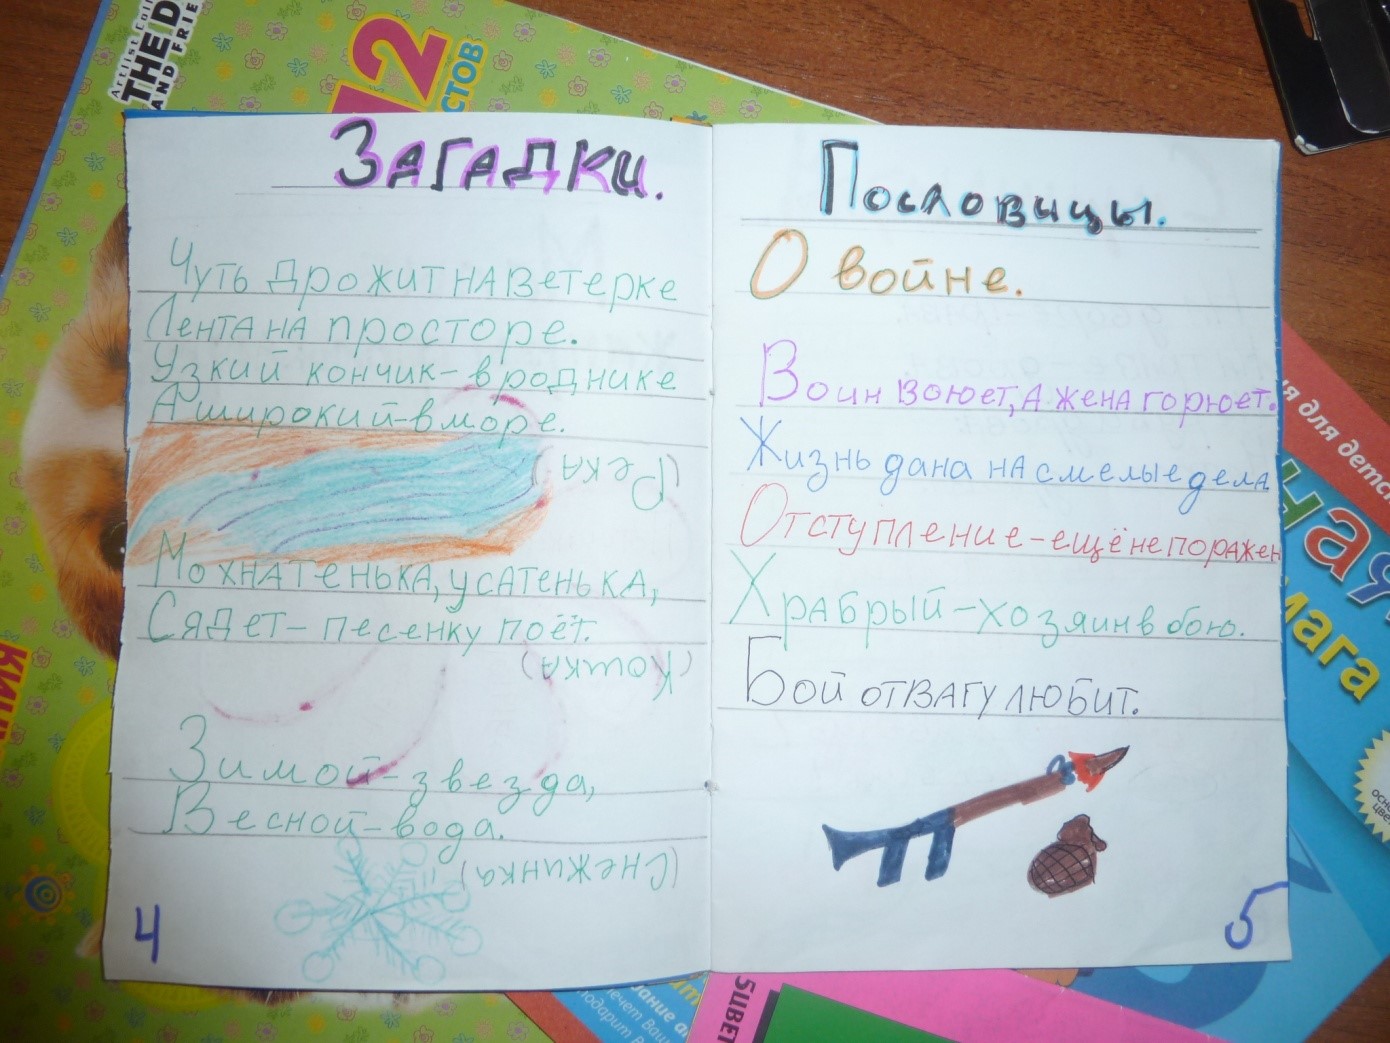 Artlist Coll
THE D
AND FRIE
12
СТОВ
ЗАГАДКИ.
Чуть дрожит на ветерке
Лента на просторе.
Узкий кончик - в роднике
А широкий - в море.
(Река)
Мохнатенька, усатенька,
Сядет - песенку поёт.
(Кошка)
Зимой - звезда,
Весной - вода.
(Снежинка)
4
Пословицы.
О войне.
Воин воюет, а жена горюет.
Жизнь дана на смелые дела
Отступление - ещё не поражен
Храбрый - хозяин в бою.
Бой отвагу любит.
5
я для детс
ная
мага
5цвет